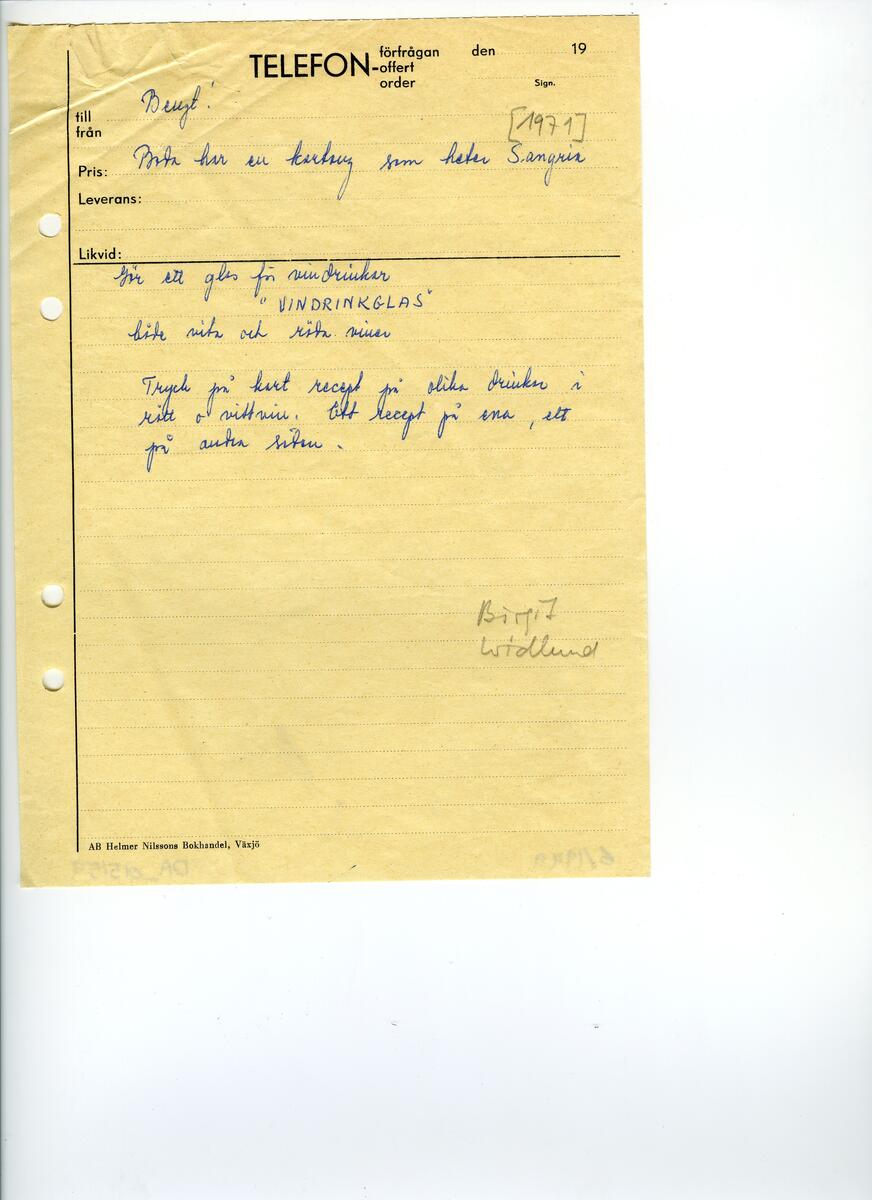 TELEFON-förfrågan
offert
order
den 19
Sign.
till Bengt!
från
[1971]
Pris: Boda har en kartong som heter Sangria
Leverans:
Likvid:
Gör ett glas för vindrinkar
"VINDRINKGLAS"
både vita och röda viner
Tryck på kart recept på olika drinkar i
rött o vittvin. Ett recept på ena, ett
på andra sidan.
Birgit
Widlund
AB Helmer Nilssons Bokhandel, Växjö